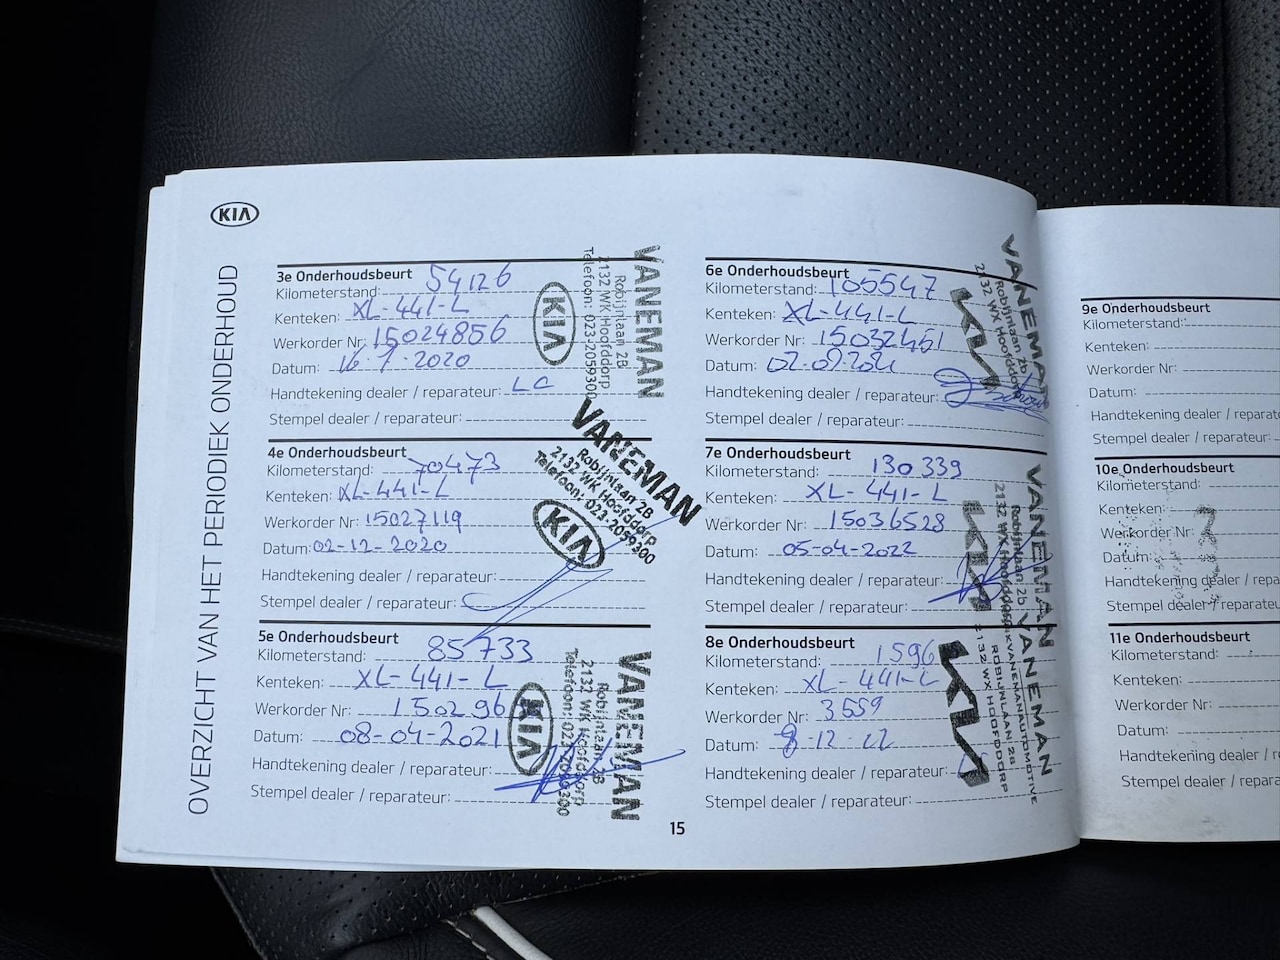 KIA
OVERZICHT VAN HET PERIODIEK ONDERHOUD
3e Onderhoudsbeurt
Kilometerstand: 54126
Kenteken: XL-441-L
Werkorder Nr: 15024856
Datum: 16 7 2020
Handtekening dealer / reparateur:
Stempel dealer / reparateur:
KIA
VANEMAN
Robijnlaan 2B
2132 WK Hoofddorp
Telefoon: 023-2059300
4e Onderhoudsbeurt
Kilometerstand: 70473
Kenteken: XL-441-L
Werkorder Nr: 15027119
Datum: 02-12-2020
Handtekening dealer / reparateur:
Stempel dealer / reparateur:
VANEMAN
Robijnlaan 2B
2132 WK Hoofddorp
Telefoon: 023-2059300
KIA
5e Onderhoudsbeurt
Kilometerstand: 85733
Kenteken: XL-441-L
Werkorder Nr: 150296
Datum: 08-04-2021
Handtekening dealer / reparateur:
Stempel dealer / reparateur:
KIA
VANEMAN
Robijnlaan 2B
2132 WK Hoofddorp
Telefoon: 023-2059300
6e Onderhoudsbeurt
Kilometerstand: 105547
Kenteken: XL-441-L
Werkorder Nr: 15032461
Datum: 02-09-2021
Handtekening dealer / reparateur:
Stempel dealer / reparateur:
KIA
VANEMAN
Robijnlaan 2b
2132 WK Hoofddorp
7e Onderhoudsbeurt
Kilometerstand: 130339
Kenteken: XL-441-L
Werkorder Nr: 15036528
Datum: 05-04-2022
Handtekening dealer / reparateur:
Stempel dealer / reparateur:
KIA
VANEMAN
Robijnlaan 2b
2132 WK Hoofddorp
8e Onderhoudsbeurt
Kilometerstand: 1596
Kenteken: XL-441-L
Werkorder Nr: 3659
Datum: 8-12-22
Handtekening dealer / reparateur:
Stempel dealer / reparateur:
KIA
VANEMAN
ROBIJNLAAN 2B
2132 WX HOOFDDORP
15
9e Onderhoudsbeurt
Kilometerstand:
Kenteken:
Werkorder Nr:
Datum:
Handtekening dealer / reparat
Stempel dealer / reparateu
10e Onderhoudsbeurt
Kilometerstand:
Kenteken:
Werkorder Nr:
Datum:
Handtekening dealer / repara
Stempel dealer / reparateu
11e Onderhoudsbeurt
Kilometerstand:
Kenteken:
Werkorder Nr:
Datum:
Handtekening dealer / repara
Stempel dealer / repara